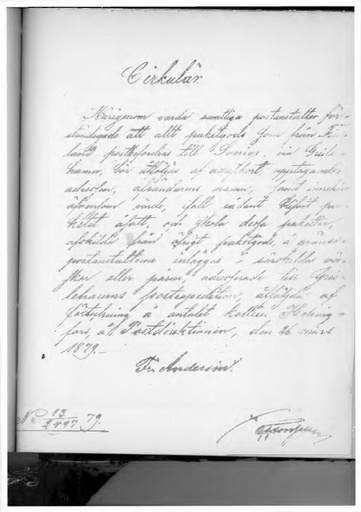 Cirkulär.
Härigenom varda samtliga postanstalter för-
ständigade att allt paketgods som från Fin-
land postbefordras till Sverige, via Grisle-
hamn, bör åtföljas af adresskort, upptagande
adressen, afsändarens namn, samt
vinde, ifall sådant blifvit pa-
ketet åsatt, och skola dessa paketer,
afskilda från öfrigt paketgods, å gräns-
postanstalterna inläggas i särskilda säc-
kar eller påsar, adresserade till Gris-
lehamns postexpedition, åtföljda af
förteckning å antalet kollin. Helsing-
fors, å Postdirektionen, den 26 mars
1879.
Fr. Andersin.
No 13/2497 79.